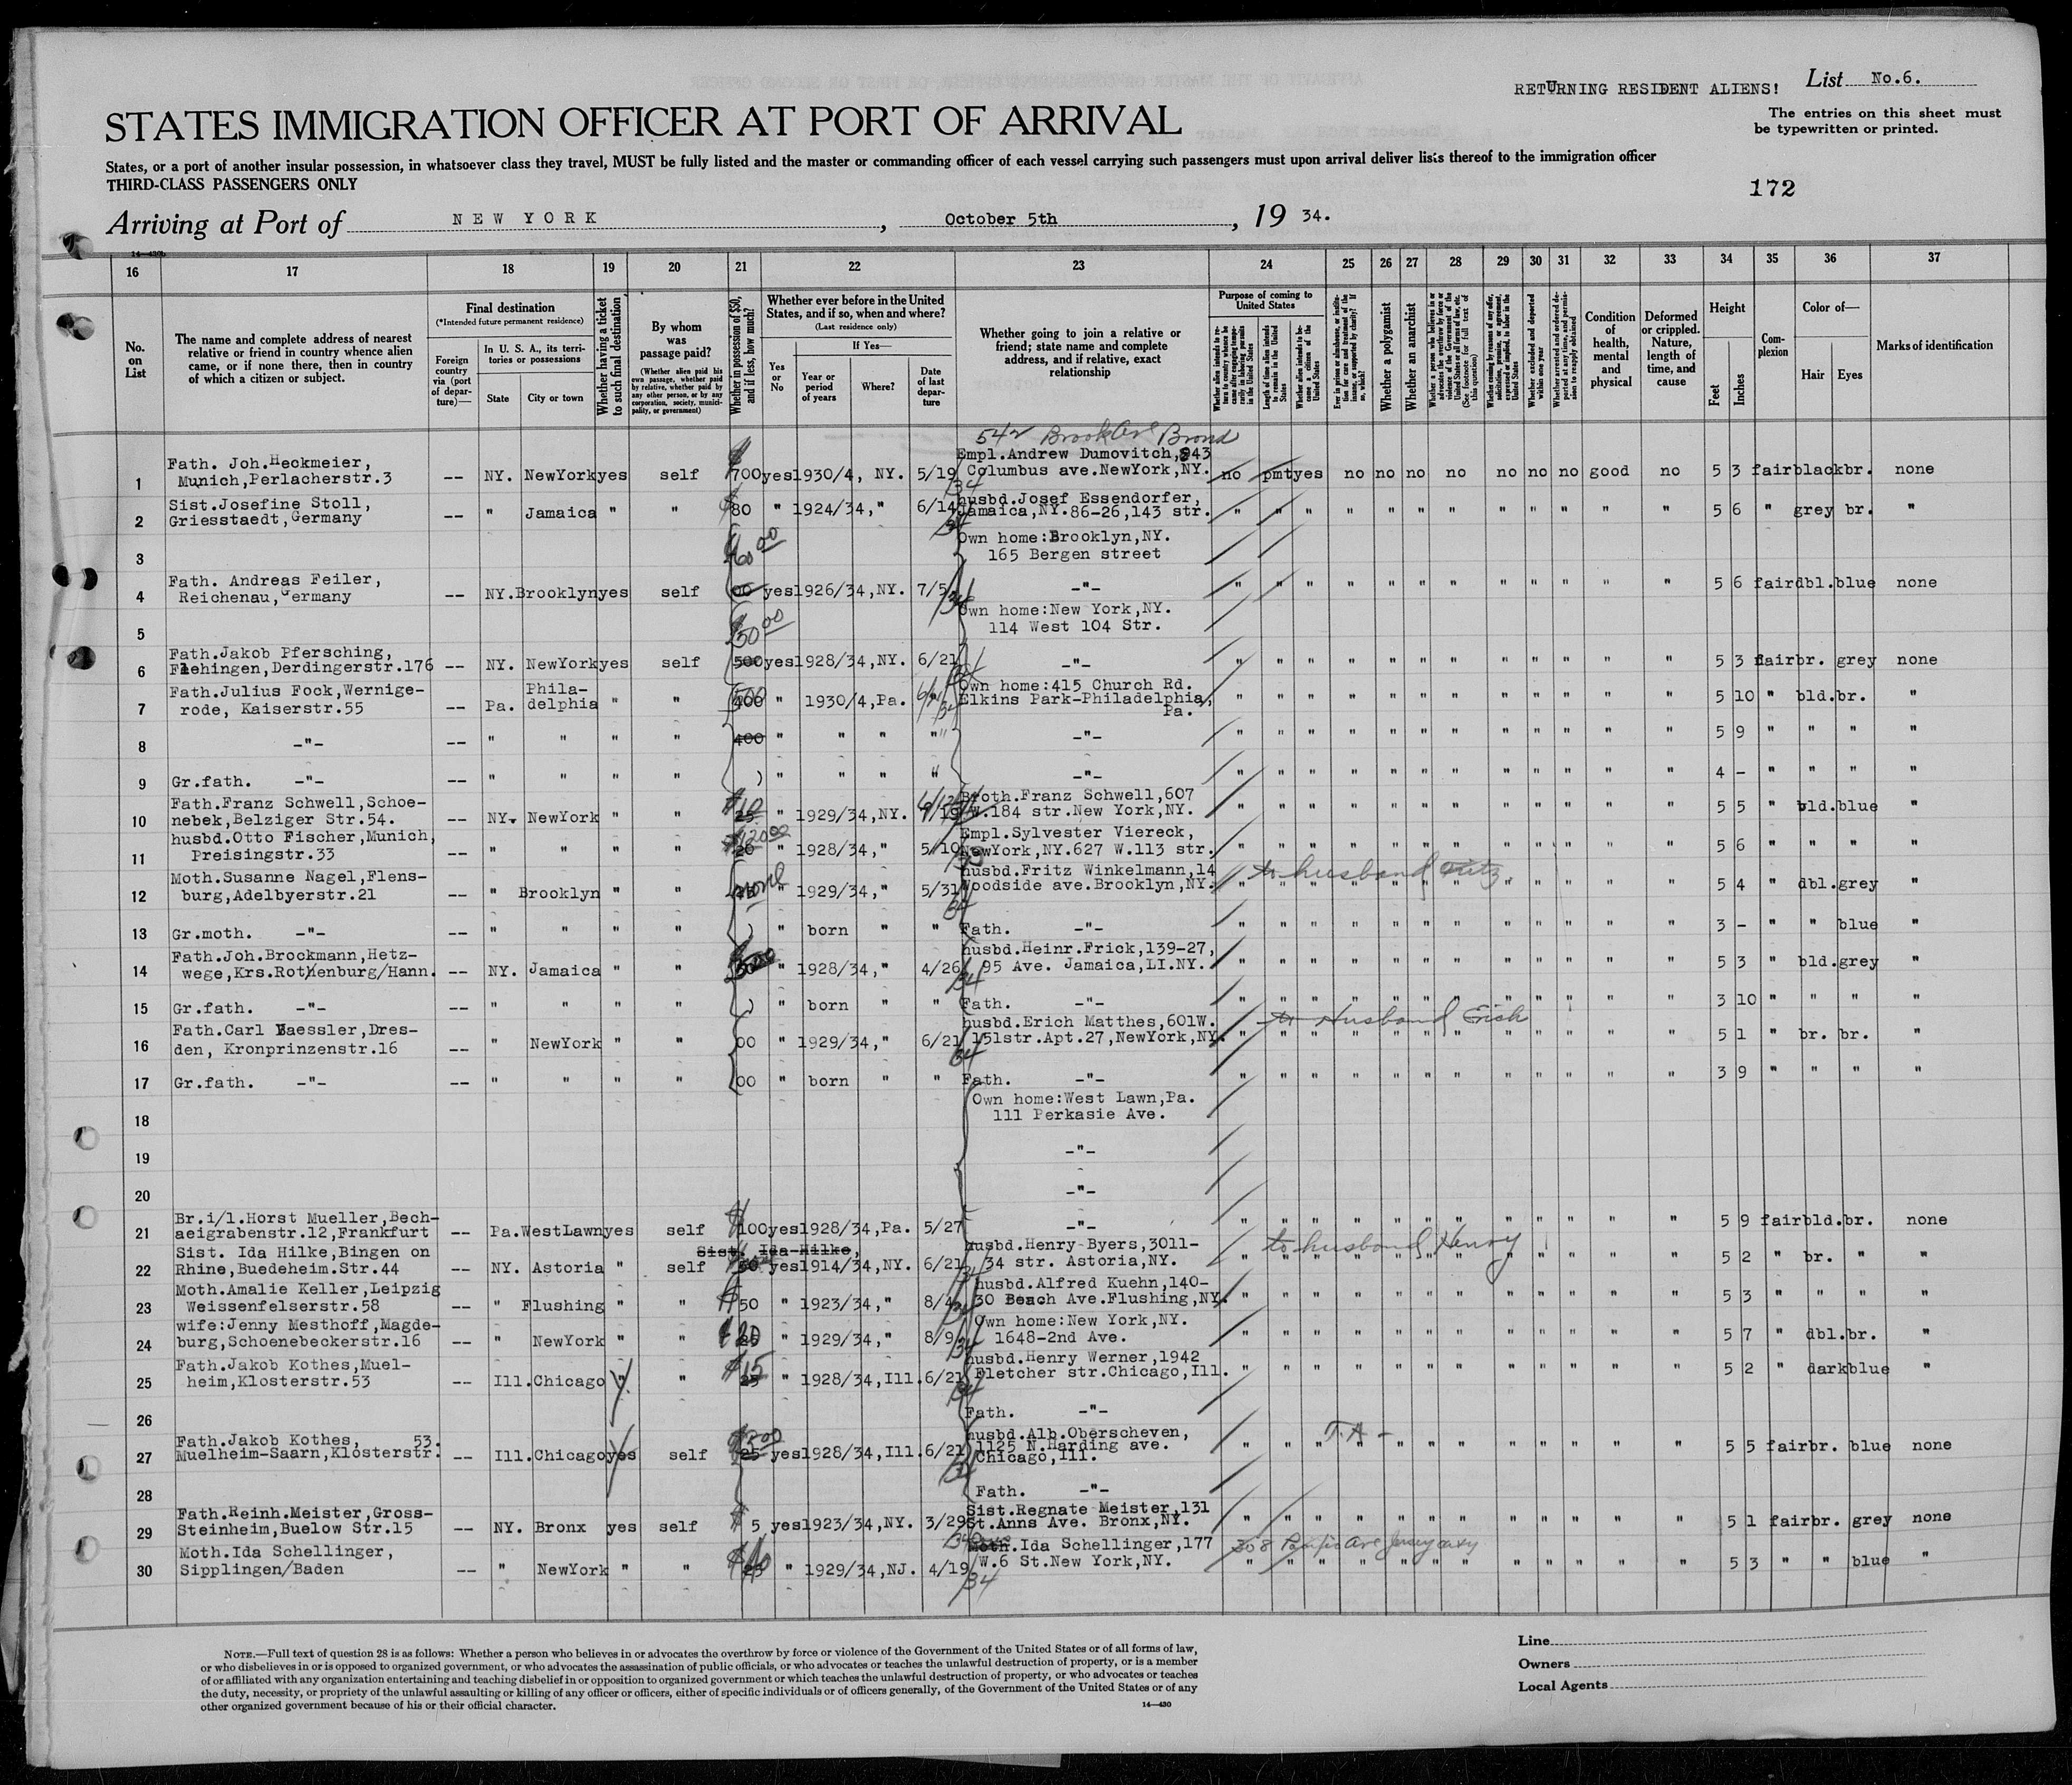 RETURNING RESIDENT ALIENS!
List No.6.
STATES IMMIGRATION OFFICER AT PORT OF ARRIVAL
The entries on this sheet must
be typewritten or printed.
States, or a port of another insular possession, in whatsoever class they travel, MUST be fully listed and the master or commanding officer of each vessel carrying such passengers must upon arrival deliver lists thereof to the immigration officer
THIRD-CLASS PASSENGERS ONLY
172
Arriving at Port of NEW YORK, October 5th, 19 34.
14—430b
16 17 18 19 20 21 22 23 24 25 26 27 28 29 30 31 32 33 34 35 36 37
No. on List
The name and complete address of nearest relative or friend in country whence alien came, or if none there, then in country of which a citizen or subject.
Final destination
(*Intended future permanent residence)
Foreign country via (port of departure)—
In U. S. A., its territories or possessions
State
City or town
Whether having a ticket to such final destination
By whom was passage paid?
(Whether alien paid his own passage, whether paid by relative, whether paid by any other person, or by any corporation, society, municipality, or government)
Whether in possession of $50, and if less, how much?
Whether ever before in the United States, and if so, when and where?
(Last residence only)
Yes or No
If Yes—
Year or period of years
Where?
Date of last departure
Whether going to join a relative or friend; state name and complete address, and if relative, exact relationship
Purpose of coming to United States
Whether alien intends to return to country whence he came after engaging temporarily in laboring pursuits in the United States
Length of time alien intends to remain in the United States
Whether alien intends to become a citizen of the United States
Ever in prison or almshouse, or institution for care and treatment of the insane, or supported by charity? If so, which?
Whether a polygamist
Whether an anarchist
Whether a person who believes in or advocates the overthrow by force or violence of the Government of the United States or all forms of law, etc. (See footnote for full text of this question)
Whether coming by reason of any offer, solicitation, promise, or agreement, expressed or implied, to labor in the United States
Whether excluded and deported within one year
Whether arrested and deported at any time, and permission to reapply obtained
Condition of health, mental and physical
Deformed or crippled. Nature, length of time, and cause
Height
Feet
Inches
Complexion
Color of—
Hair
Eyes
Marks of identification
542 Brook Ave Bronx
1 Fath. Joh.Heckmeier, Munich,Perlacherstr.3 -- NY. NewYork yes self $ 700 yes 1930/4, NY. 5/19 34 Empl.Andrew Dumovitch,843 Columbus ave.NewYork,NY. no pmt yes no no no no no no no good no 5 3 fair black br. none
2 Sist.Josefine Stoll, Griesstaedt,Germany -- " Jamaica " " $ 80 " 1924/34," 6/14 34 husbd.Josef Essendorfer, Jamaica,NY.86-26,143 str. " " " " " " " " " " " " 5 6 " grey br. "
3 $60 00 Own home:Brooklyn,NY. 165 Bergen street
4 Fath. Andreas Feiler, Reichenau,Germany -- NY. Brooklyn yes self 00 yes 1926/34,NY. 7/5 34 -"- " " " " " " " " " " " " 5 6 fair dbl. blue none
5 $50 00 Own home:New York,NY. 114 West 104 Str.
6 Fath.Jakob Pfersching, Flehingen,Derdingerstr.176 -- NY. NewYork yes self 500 yes 1928/34,NY. 6/21 34 -"- " " " " " " " " " " " " 5 3 fair br. grey none
7 Fath.Julius Fock,Wernigerode, Kaiserstr.55 -- Pa. Philadelphia " " 500 400 " 1930/4,Pa. 6/21 34 Own home:415 Church Rd. Elkins Park-Philadelphia, Pa. " " " " " " " " " " " " 5 10 " bld. br. "
8 -"- -- " " " " 400 " " " " -"- " " " " " " " " " " " " 5 9 " " " "
9 Gr.fath. -"- -- " " " " ) " " " " -"- " " " " " " " " " " " " 4 - " " " "
10 Fath.Franz Schwell,Schoenebek,Belziger Str.54. -- NY. NewYork " " $10 25 " 1929/34,NY. Broth.Franz Schwell,607 W.184 str.New York,NY. " " " " " " " " " " " " 5 5 " bld. blue "
11 husbd.Otto Fischer,Munich, Preisingstr.33 -- " " " " $120 00 20 " 1928/34," 5/10 33 Empl.Sylvester Viereck, NewYork,NY.627 W.113 str. " " " " " " " " " " " " 5 6 " " " "
12 Moth.Susanne Nagel,Flensburg,Adelbyerstr.21 -- " Brooklyn " " none " 1929/34," 5/31 34 husbd.Fritz Winkelmann,14 Woodside ave.Brooklyn,NY. to husband Fritz. " " " " " " " " " " " " 5 4 " dbl. grey "
13 Gr.moth. -"- -- " " " " ) " born " " Fath. -"- " " " " " " " " " " " " 3 - " " blue "
14 Fath.Joh.Brockmann,Hetzwege,Krs.Rothenburg/Hann. -- NY. Jamaica " " " 1928/34," 4/26 34 husbd.Heinr.Frick,139-27, 95 Ave. Jamaica,LI.NY. " " " " " " " " " " " " 5 3 " bld. grey "
15 Gr.fath. -"- -- " " " " ) " born " " Fath. -"- " " " " " " " " " " " " 3 10 " " " "
16 Fath.Carl Baessler,Dresden, Kronprinzenstr.16 -- " NewYork " " 00 " 1929/34," 6/21 34 husbd.Erich Matthes,601W. 151str.Apt.27,NewYork,NY. to Husband Erich " " " " " " " " " " " " 5 1 " br. br. "
17 Gr.fath. -"- -- " " " " 00 " born " " Fath. -"- " " " " " " " " " " " " 3 9 " " " "
18 Own home:West Lawn,Pa. 111 Perkasie Ave.
19 -"-
20 -"-
21 Br.i/l.Horst Mueller,Bechaeigrabenstr.12,Frankfurt -- Pa. WestLawn yes self $ 100 yes 1928/34,Pa. 5/27 -"- " " " " " " " " " " " " 5 9 fair bld. br. none
Sist. Ida Hilke,
22 Sist. Ida Hilke,Bingen on Rhine,Buedeheim.Str.44 -- NY. Astoria " self 50 yes 1914/34,NY. 6/21 34 husbd.Henry Byers,3011- 34 str. Astoria,NY. to husband Henry " " " " " " " " " " " " 5 2 " br. " "
23 Moth.Amalie Keller,Leipzig Weissenfelserstr.58 -- " Flushing " " $ 50 " 1923/34," 8/4 34 husbd.Alfred Kuehn,140- 30 Beach Ave.Flushing,NY. " " " " " " " " " " " " 5 3 " " " "
24 wife:Jenny Mesthoff,Magdeburg,Schoenebeckerstr.16 -- " NewYork " " $20 " 1929/34," 8/9 34 Own home:New York,NY. 1648-2nd Ave. " " " " " " " " " " " " 5 7 " dbl. br. "
25 Fath.Jakob Kothes,Muelheim,Klosterstr.53 -- Ill. Chicago " " $15 25 " 1928/34,Ill. 6/21 34 husbd.Henry Werner,1942 Fletcher str.Chicago,Ill. " " " " " " " " " " " " 5 2 " dark blue "
26 Fath. -"-
27 Fath.Jakob Kothes, 53. Muelheim-Saarn,Klosterstr. -- Ill. Chicago yes self 25 yes 1928/34,Ill. 6/21 34 husbd.Alb.Oberscheven, 1125 N.Harding ave. Chicago,Ill. T.A - " " " " " " " " " " " " 5 5 fair br. blue none
28 Fath. -"-
29 Fath.Reinh.Meister,Gross-Steinheim,Buelow Str.15 -- NY. Bronx yes self $ 5 yes 1923/34,NY. 3/29 34 Sist.Regnate Meister,131 St.Anns Ave. Bronx,NY. " " " " " " " " " " " " 5 1 fair br. grey none
30 Moth.Ida Schellinger, Sipplingen/Baden -- " NewYork " " 25 " 1929/34,NJ. 4/19 34 Moth.Ida Schellinger,177 W.6 St.New York,NY. 308 Pacific Ave Jersey City " " " " " " " " " " " " 5 3 " " blue "
NOTE.—Full text of question 28 is as follows: Whether a person who believes in or advocates the overthrow by force or violence of the Government of the United States or of all forms of law,
or who disbelieves in or is opposed to organized government, or who advocates the assassination of public officials, or who advocates or teaches the unlawful destruction of property, or is a member
of or affiliated with any organization entertaining and teaching disbelief in or opposition to organized government or which teaches the unlawful destruction of property, or who advocates or teaches
the duty, necessity, or propriety of the unlawful assaulting or killing of any officer or officers, either of specific individuals or of officers generally, of the Government of the United States or of any
other organized government because of his or their official character.
14—430
Line
Owners
Local Agents